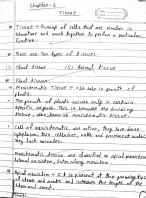 Chapter-6
Tissue
Tissue → Group of cells that are similar in
structure and work together to perform a particular
function.
There are two types of tissues
(1) Plant tissue (2) Animal tissue
Plant tissue
Meristematic tissue → It help in growth of
plants.
The growth of plants occurs only in certain
specific regions. This is because the dividing
tissue, also known as meristematic tissues.
Cell of meristematic are active, they have dense
cytoplasm, thin cellulose walls and prominent nuclei
They lack vacuoles.
Meristematic tissue are classified as apical meristem,
lateral meristem, intercalary meristem.
Apical meristem → It is present at the growing tips
of stems and roots and increases the length of the
stem and root.